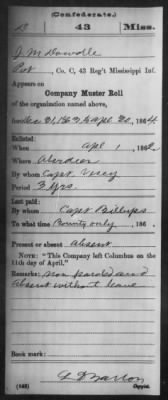 (Confederate.)
D 43 Miss.
J M Dowdle
Pvt, Co. C, 43 Reg't Mississippi Inf.
Appears on
Company Muster Roll
of the organization named above,
for Dec 31, 1863 to Apl 30, 1864
Enlisted:
When Apl 1, 186
Where Aberdeen
By whom Capt
Period 3 yrs.
Last paid:
By whom Capt Billups
To what time Bounty only, 186
Present or absent Absent
NOTE: "This Company left Columbus on the
11th day of April."
Remarks: non paroled and
absent without leave
Book mark:
(642)
Copyist.